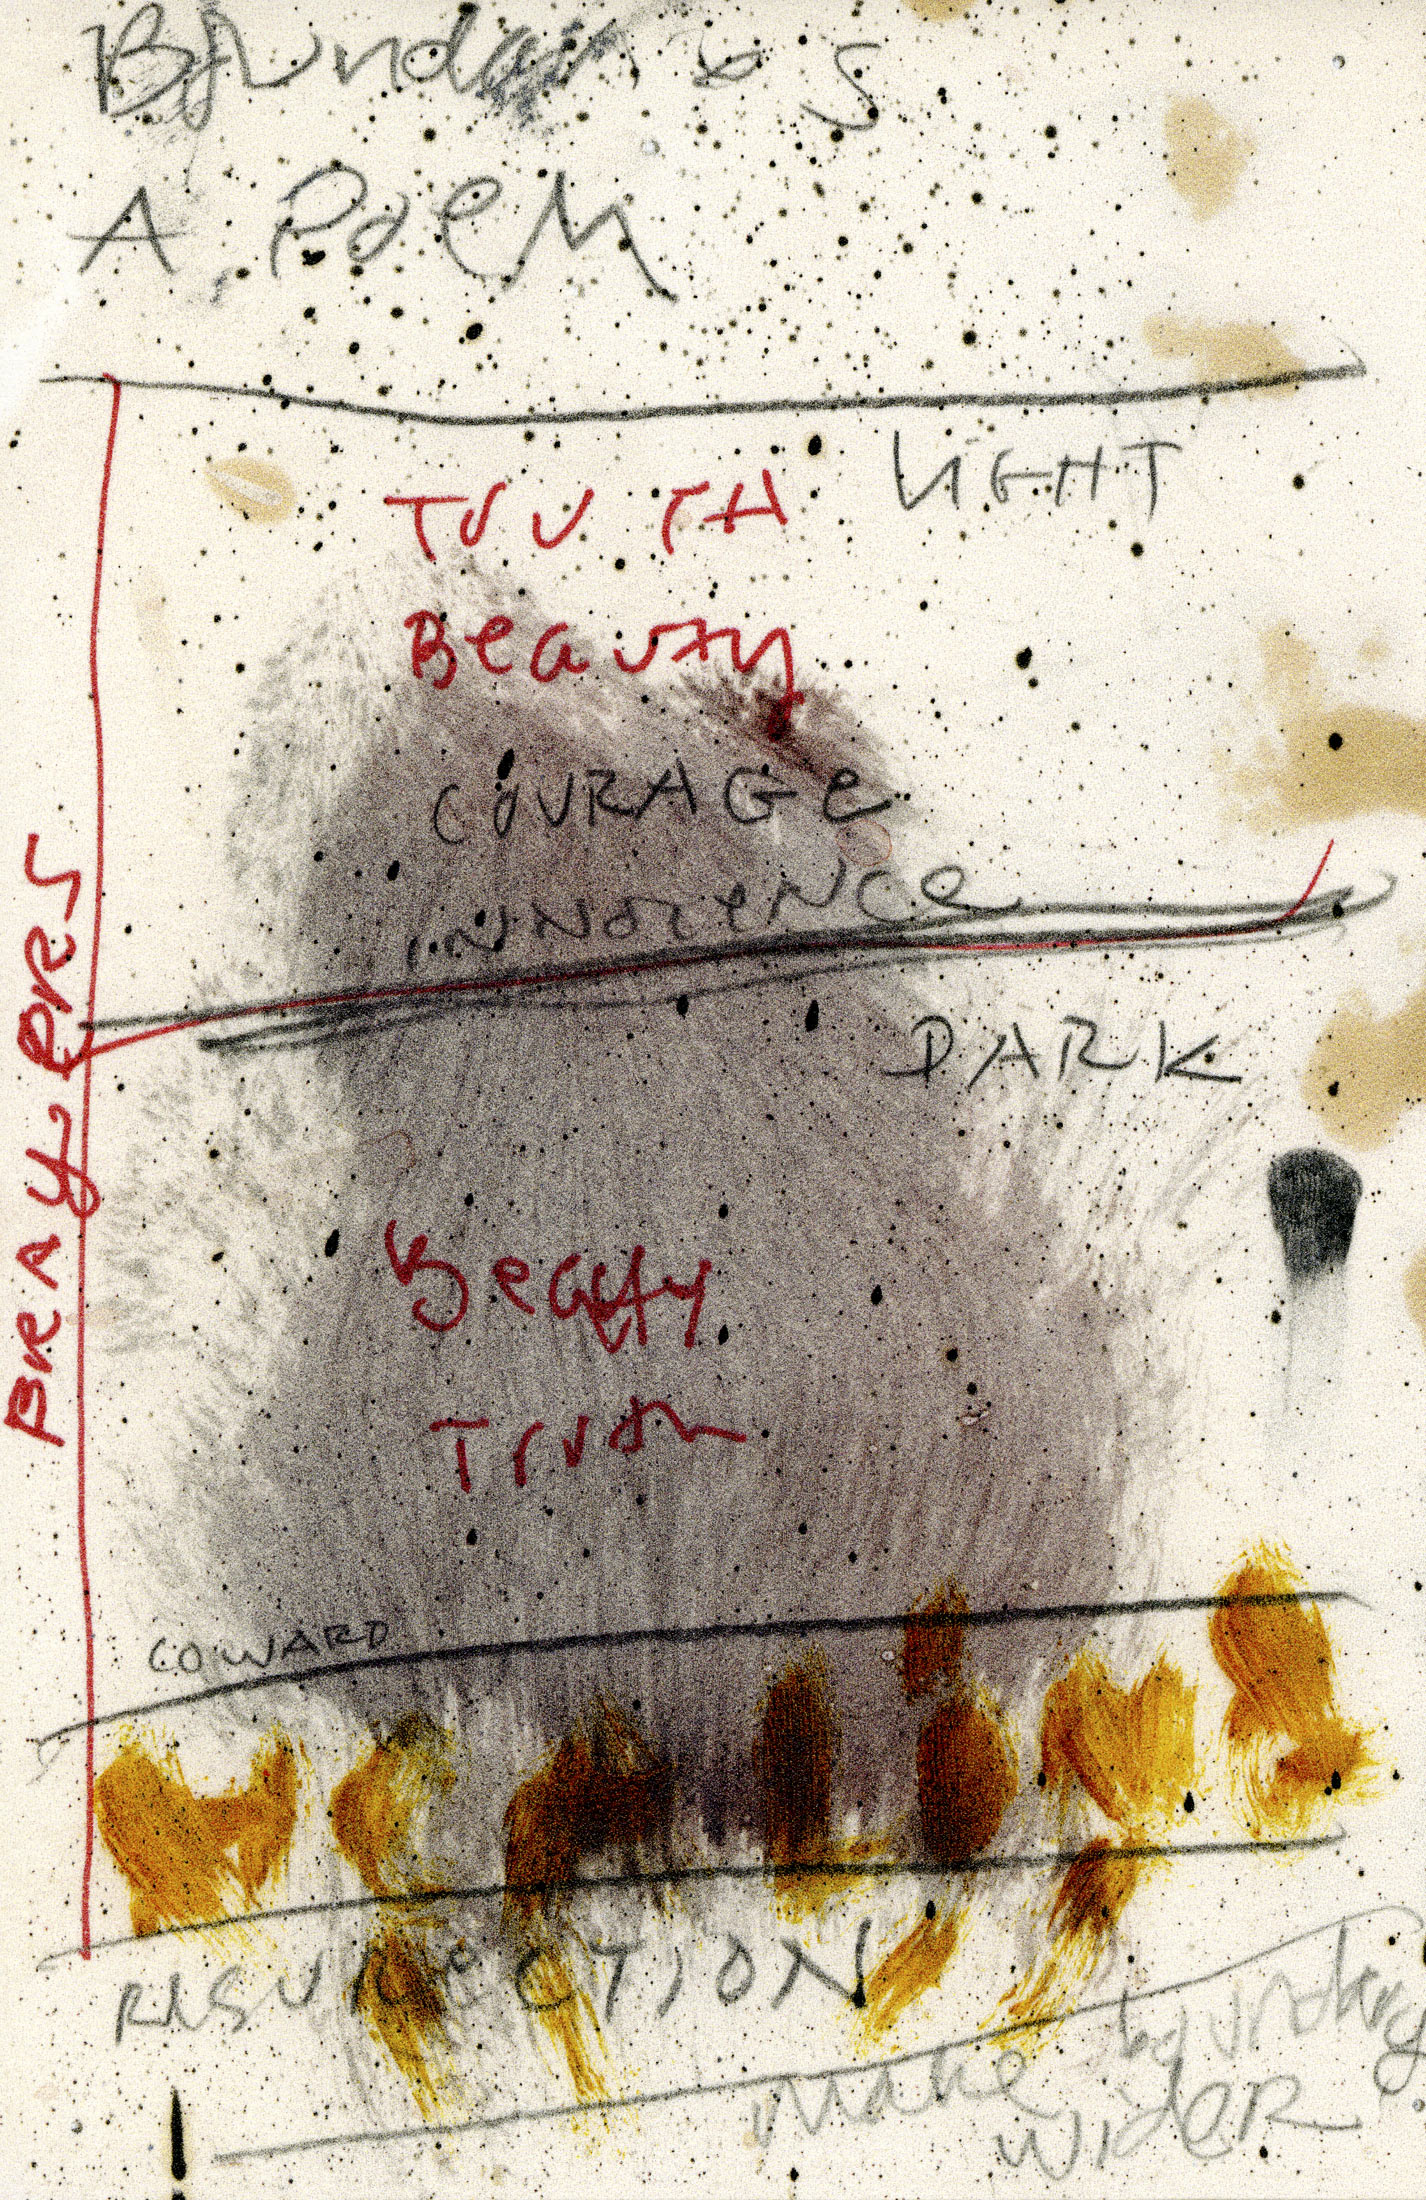 A POEM
LIGHT
TrUTH
Beauty
COURAGe
iNNOCeNCe
DARK
Beauty
Truth
COWARD
RESURECTION
make boundary
WIDER